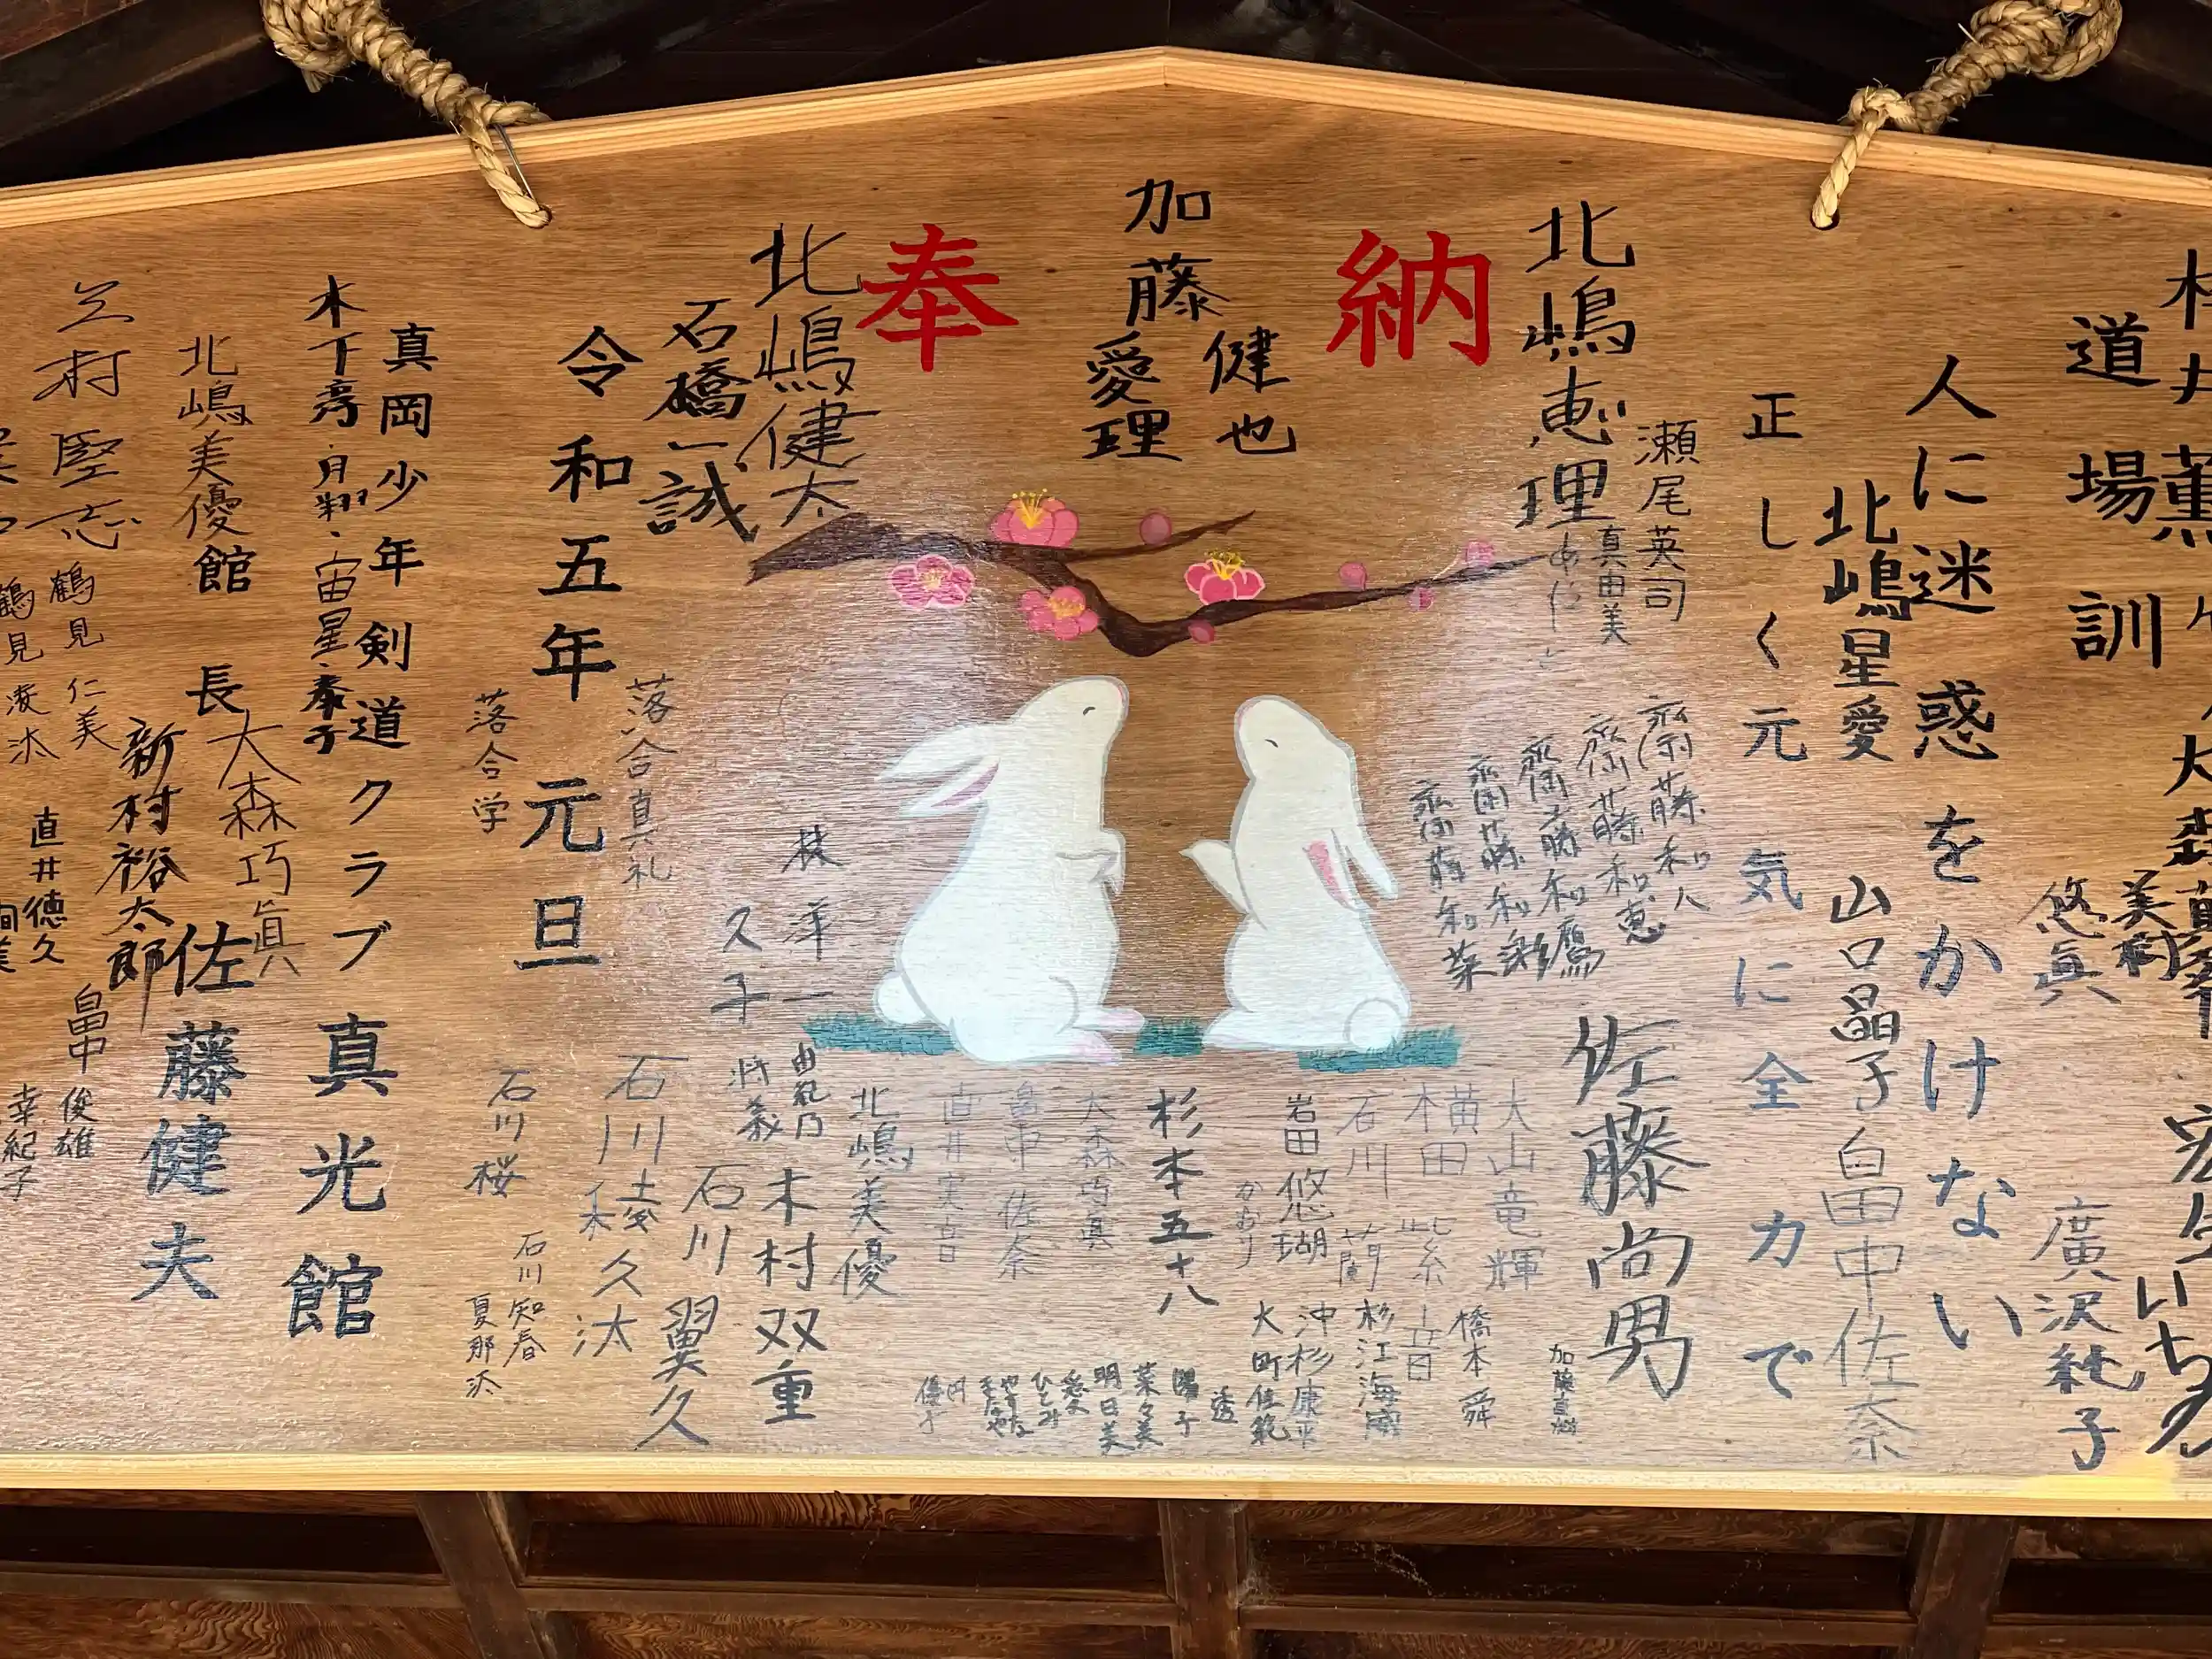 奉納
道場訓
人に迷惑をかけない
正しく元気に全力で
加藤
健也
愛理
北嶋恵理
瀬尾英司
真由美
北嶋星愛
山口晶子
畠中佐奈
悠真
廣沢純子
齋藤和人
齋藤和恵
齋藤和鷹
齋藤和彩
齋藤和菜
佐藤尚男
加藤直樹
大山竜輝
横田
橋本舜
石川蘭
杉江海威
岩田悠瑚
沖杉康平
大町佳範
かおり
杉本五十八
透
陽子
菜々美
明日美
愛
ひとみ
大森巧真
畠中佐奈
直井実音
北嶋美優
木村双重
洋一
久子
由紀乃
将義
石川翼久
石川稜久汰
北嶋健太
石橋一誠
令和五年元旦
落合真礼
落合学
石川桜
石川知春
夏那汰
真岡少年剣道クラブ真光館
木下彦・月翔・宙星・泰子
館長 佐藤健夫
北嶋美優
大森巧眞
新村裕太郎
立村堅志
鶴見仁美
鶴見凌汰
直井徳久
畠中俊雄
幸紀子